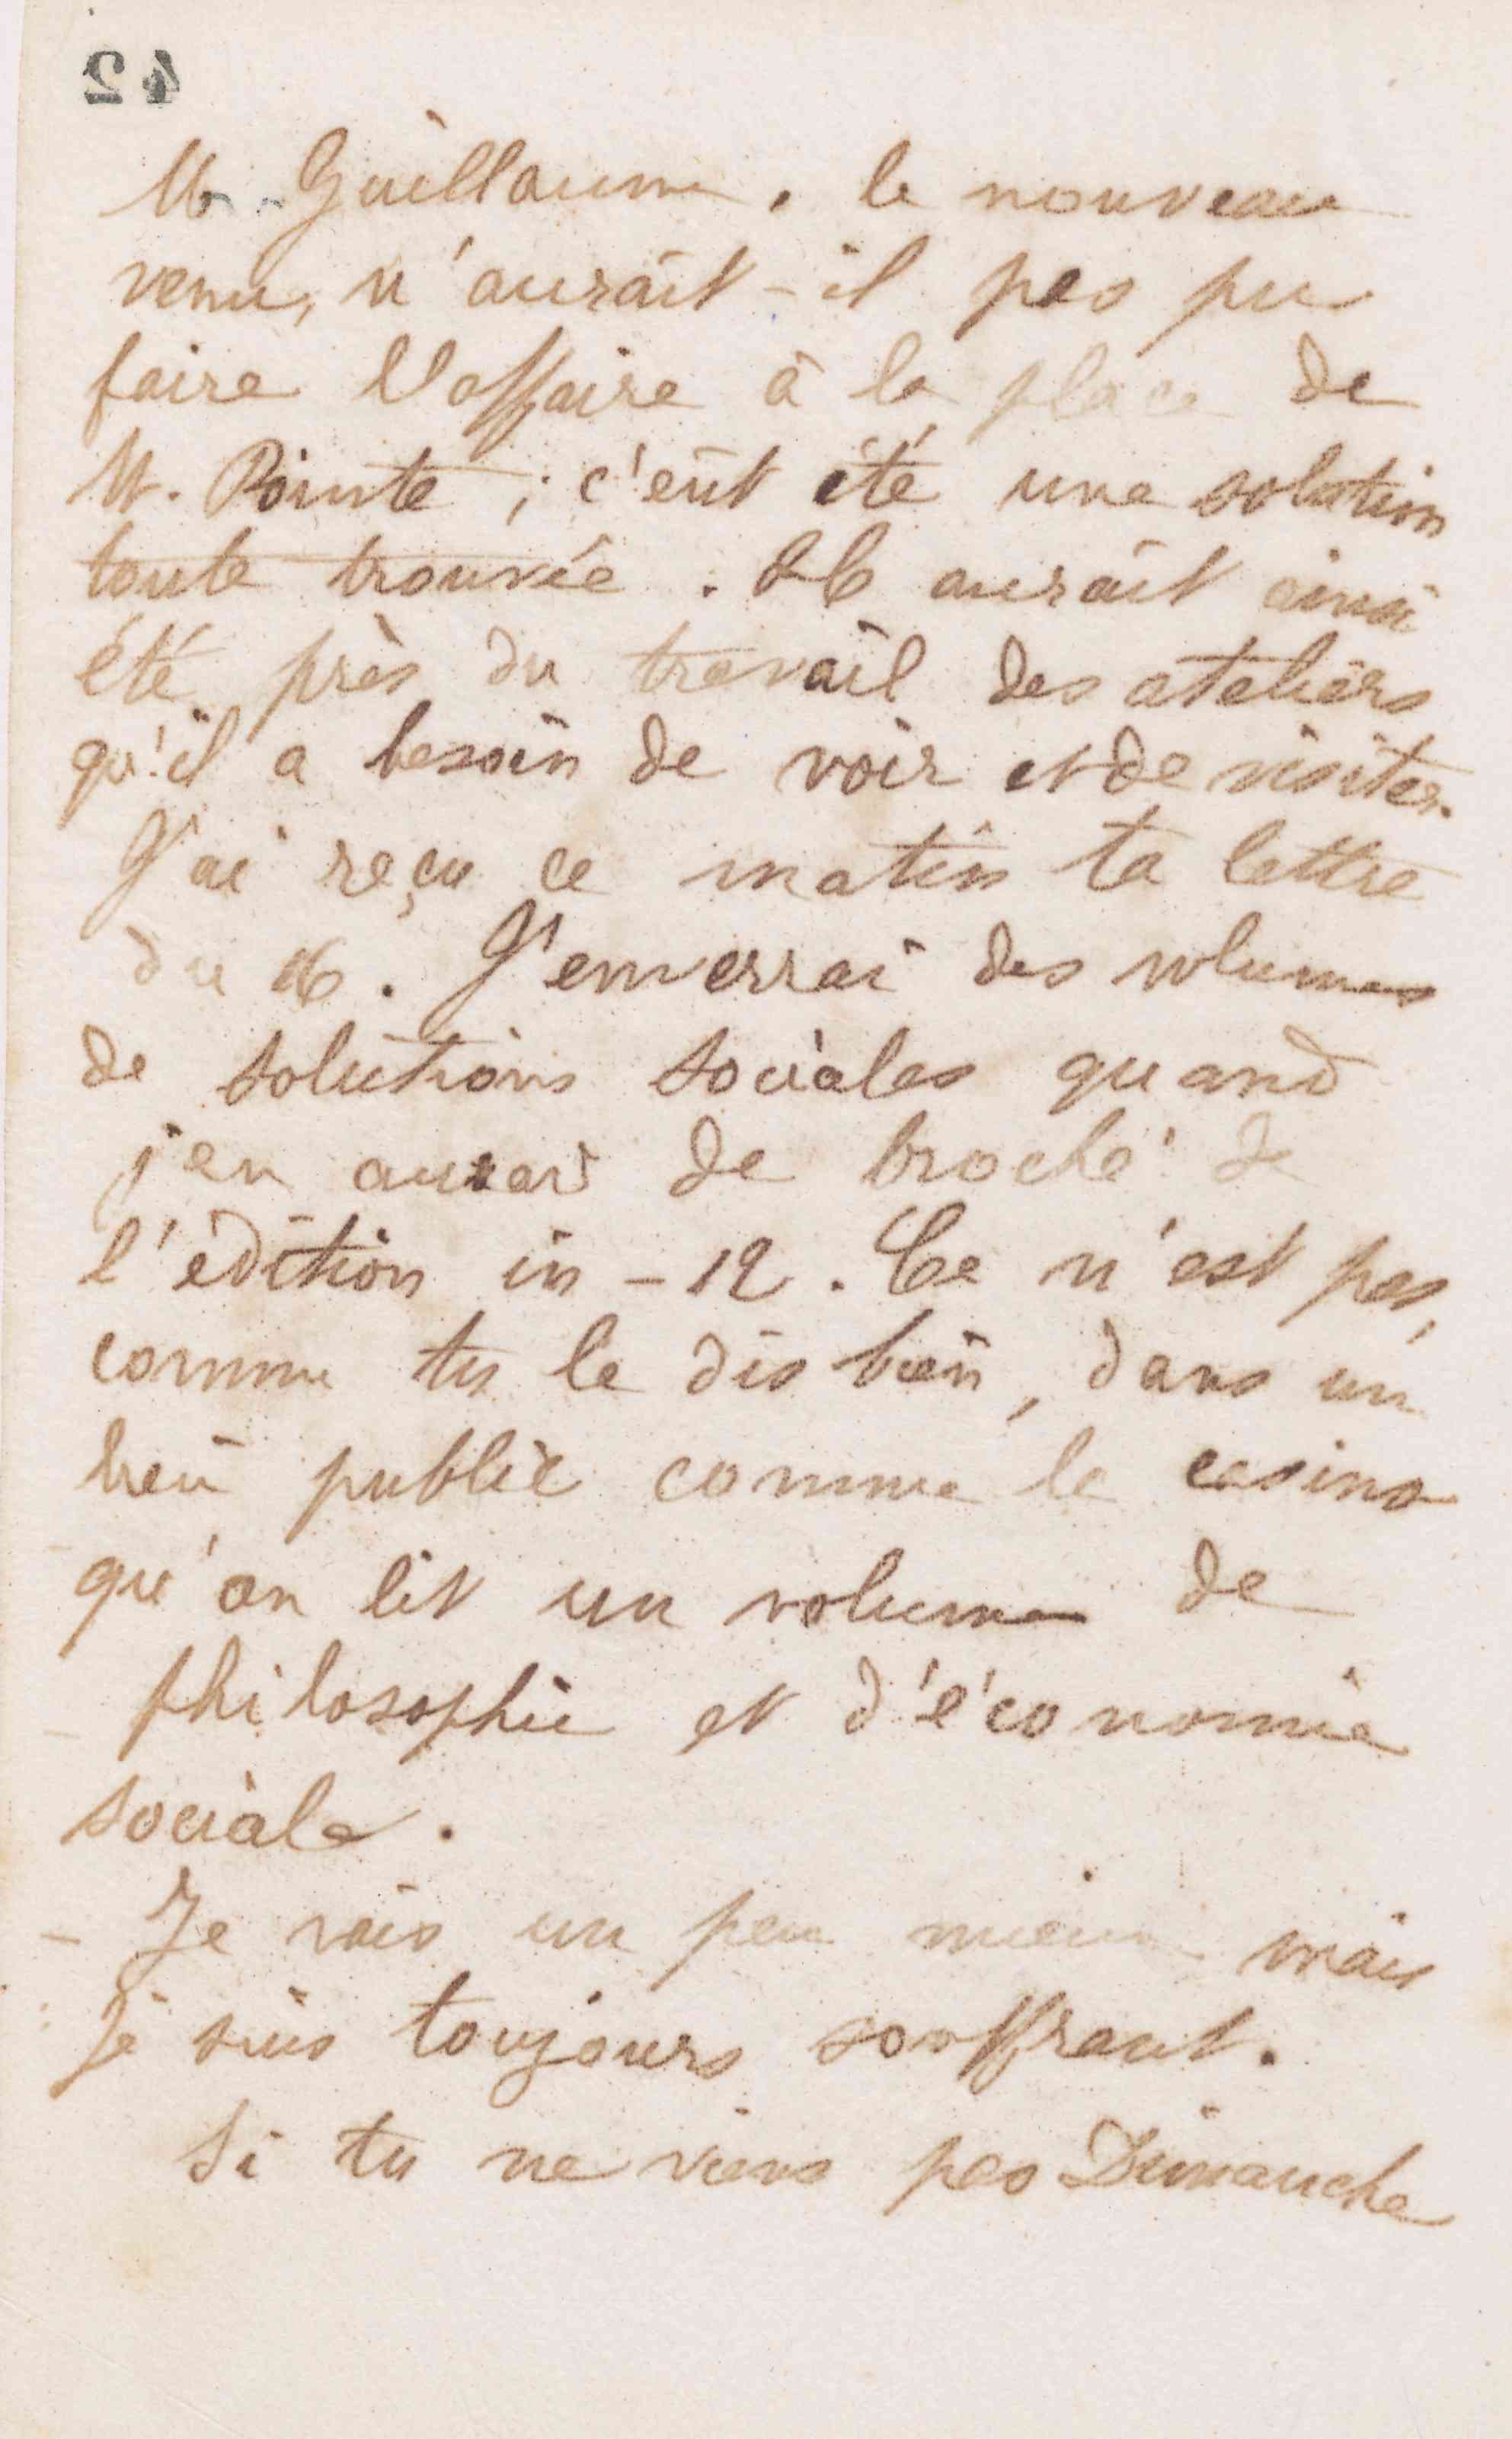 42
M. Guillaume, le nouveau
venu, n'aurait-il pas pu
faire l'affaire à la place de
M. Pointe ; c'eût été une solution
toute trouvée. Il aurait ainsi
été près du travail des ateliers
qu'il a besoin de voir et de visiter.
J'ai reçu ce matin ta lettre
du 16. J'enverrai des volumes
de solutions sociales quand
j'en aurai de broché de
l'édition in-12. Ce n'est pas,
comme tu le dis bien, dans un
lieu public comme le casino
qu'on lit un volume de
philosophie et d'économie
sociale.
- Je vais un peu mieux mais
je suis toujours souffrant.
Si tu ne viens pas Dimanche